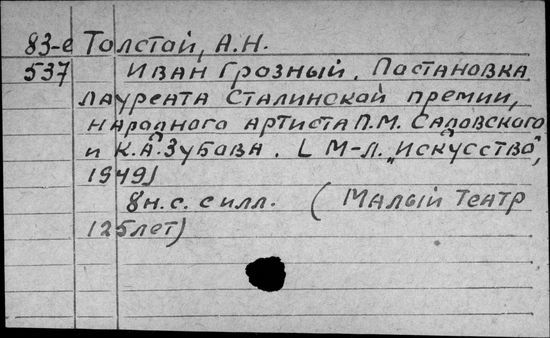 83-е Толстой, А.Н.
537 Иван Грозный. Постановка
лауреата Сталинской премии,
народного артиста П.М. Садовского
и К.А. Зубова. [М-Л. „Искусство",
1949]
8н.с. с илл. (Малый Театр
125 лет)